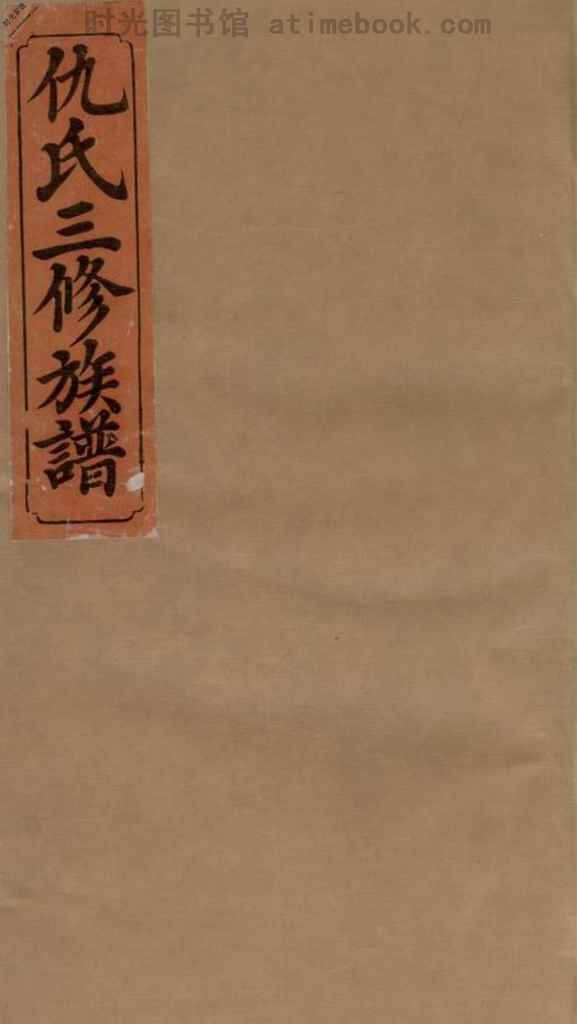 时光图书馆 atimebook.com
仇氏三修族譜